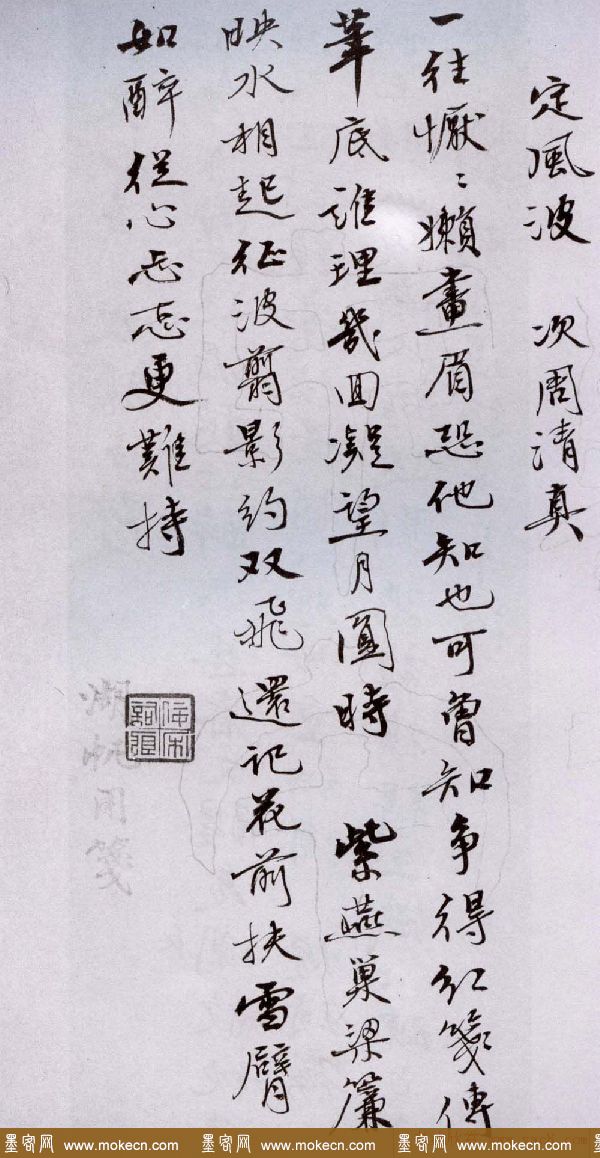 定風波 次周清真
一往懨〻嬾畫眉恐他知也可曾知爭得紅箋傳
筆底誰理幾回凝望月圓時 紫燕巢梁簾
映水相起征波翦影約双飛還記花前扶雪臂
如醉從心忐忑更難持
佞宋詞痕
湖帆用箋
墨客网 www.mokecn.com 墨客网 www.mokecn.com 墨客网 www.mokecn.com